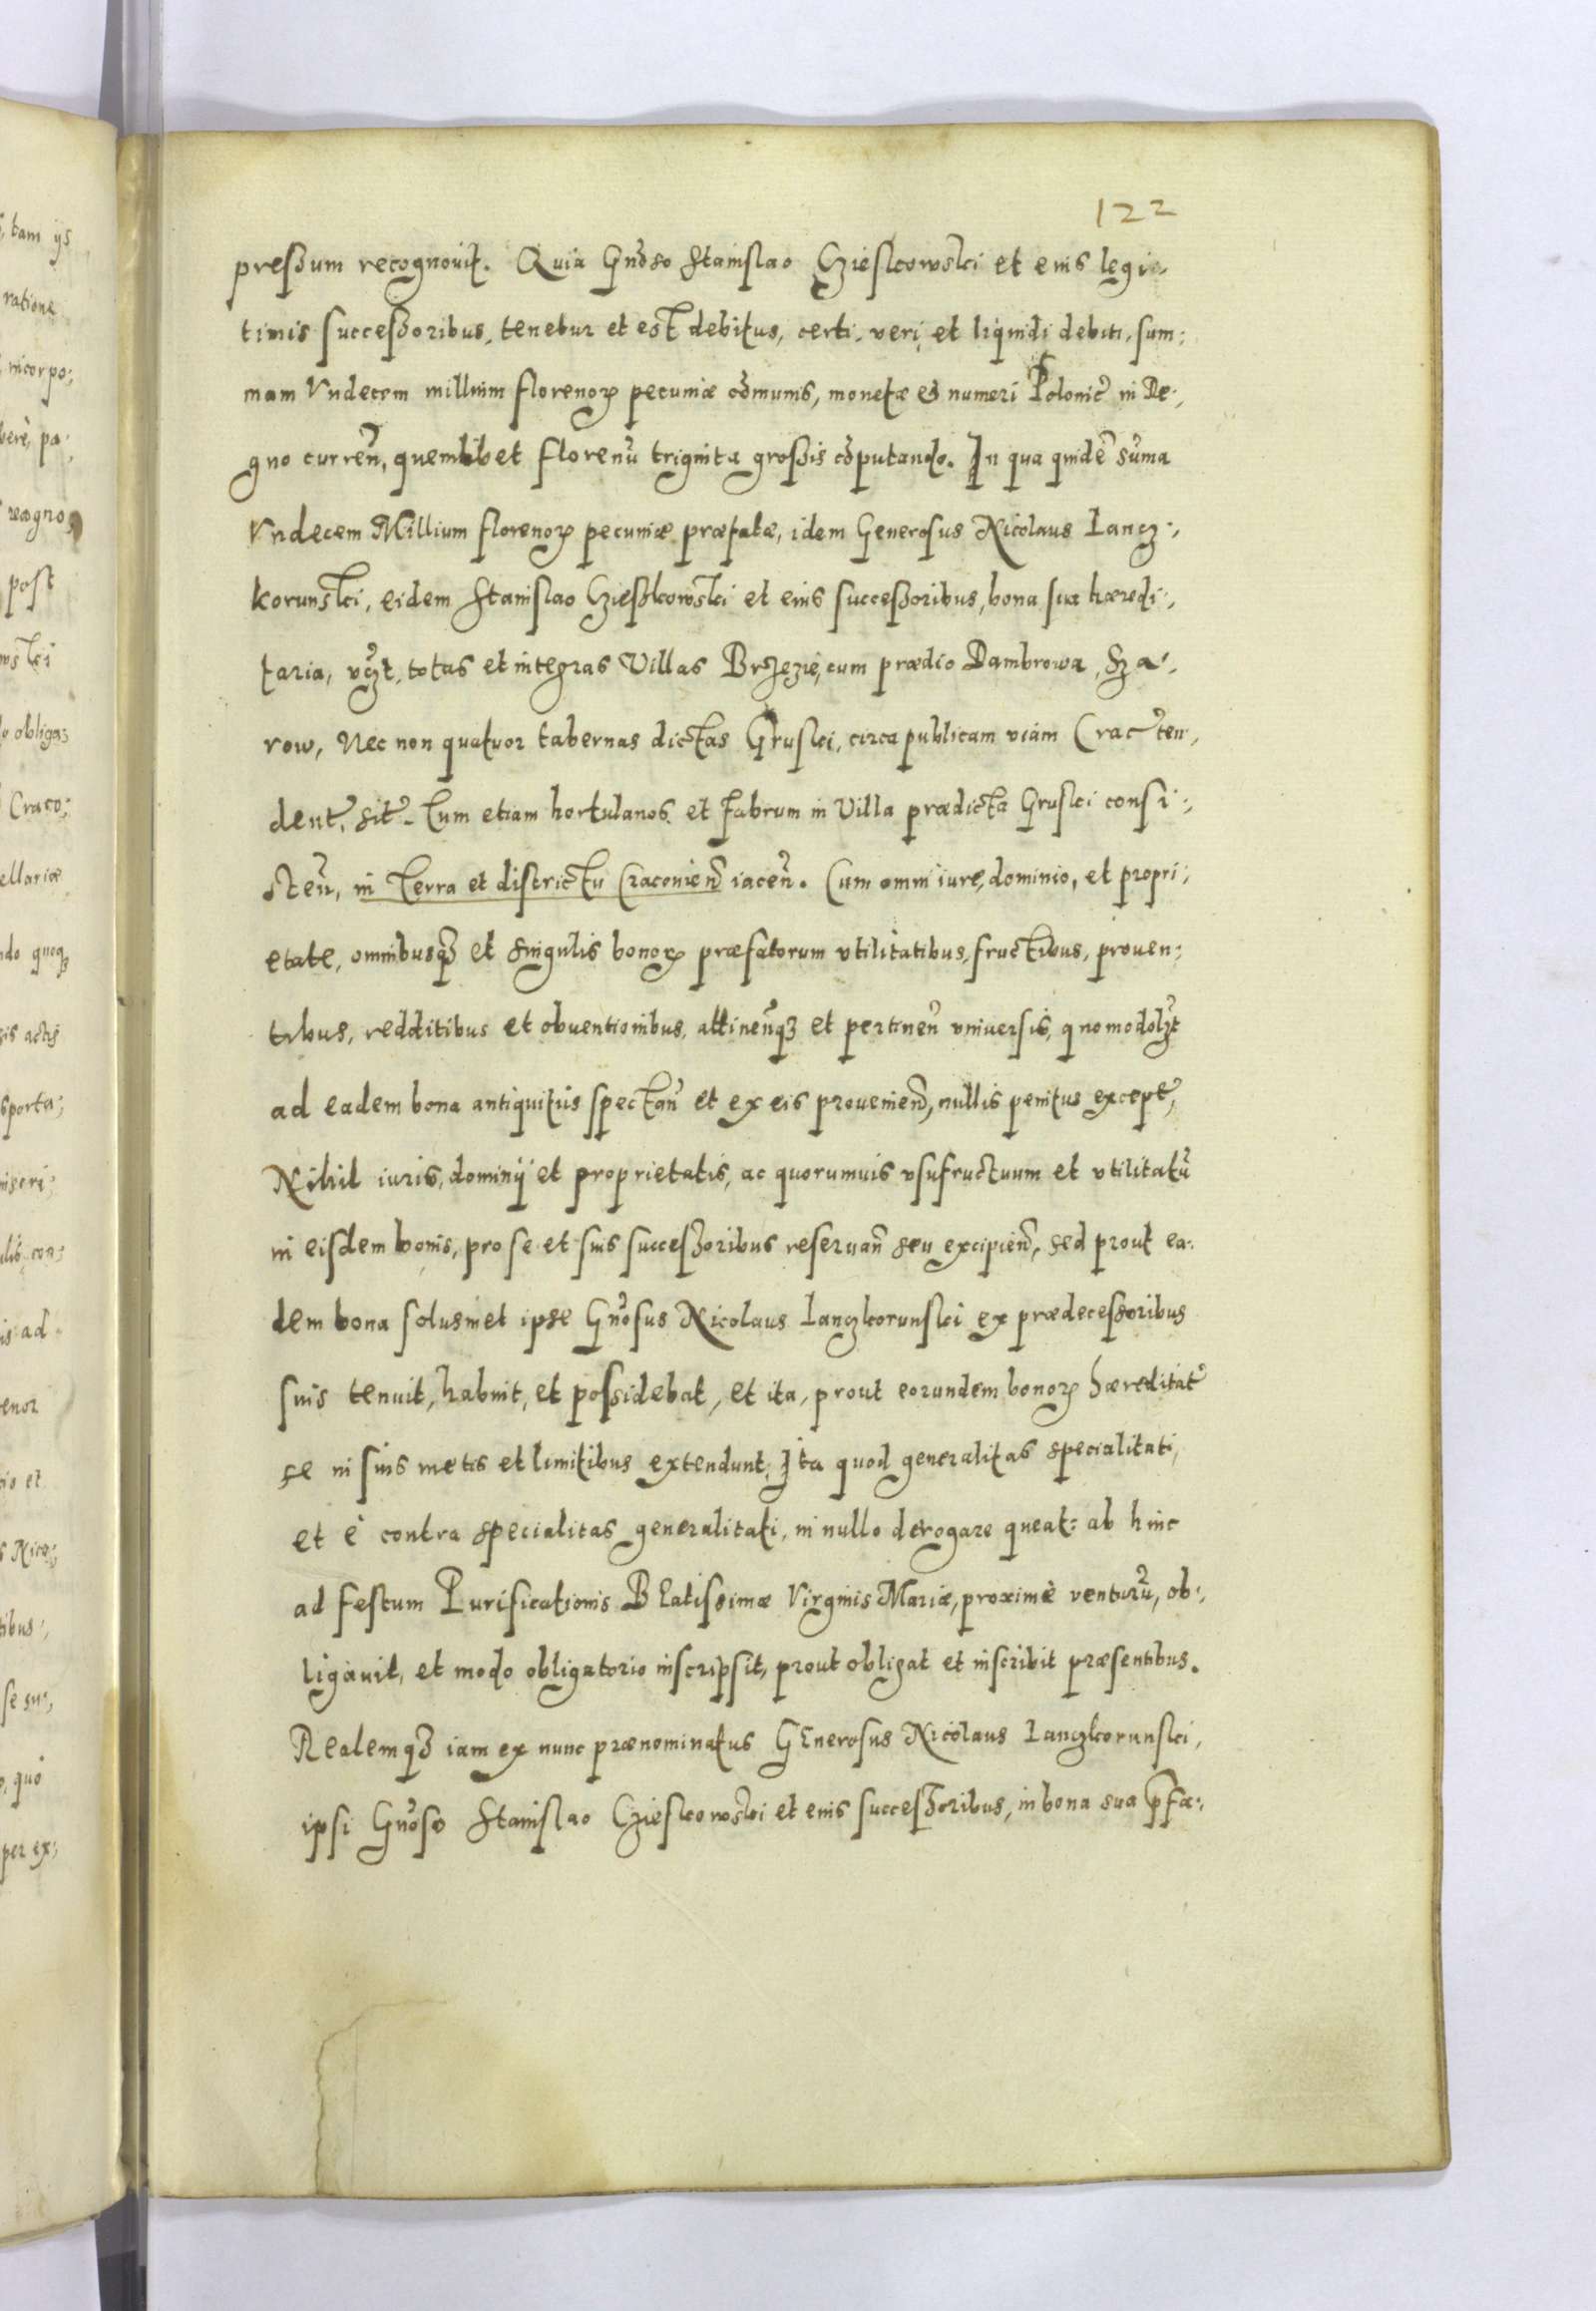 122
preſsum recognouit. Quia Gnoso Stanislao Czieskowski et eius legi-
timis succeſsoribus, tenetur et est debitus, certi, veri, et liquidi debiti, sum:
mam Vndecem millium florenoꝝ pecuniæ cōmunis, monetæ et numeri Polonic̃ in Re:,
gno curren̄, quemlibet florenū triginta groſsis cōputando. In qua quidē sūma
Vndecem Millium florenoꝝ pecuniæ præfatæ, idem Generosus Nicolaus Lancz:,
korunski, eidem Stanislao Czieskowski et eius succeſsoribus, bona sua hæredi:,
taria, vꝫt, totas et integras Villas Brzezie, cum prædio Dambrowa, Sza:,
row, Nec non quatuor tabernas dictas Gruski, circa publicam viam Crac̃ ten,
dent̃, sit̃. Tum etiam hortulanos et fabrum in Villa prædicta Gruski consi:,
sten̄, in terra et districtu Cracouien̄ iacen̄. Cum omni iure, dominio, et propri:,
etate, omnibusqꝫ et singulis bonoꝝ præfatorum vtilitatibus, fructibus, prouen:
tibus, redditibus et obuentionibus, attinen̄qꝫ et pertinen̄ vniuersis, quomodolꝫt
ad eadem bona antiquitùs spectan̄ et ex eis prouenien̄, nullis penitus except̃,
Nihil iuris, dominij et proprietatis, ac quorumuis vsufructuum et vtilitatū
in eisdem bonis, pro se et suis succeſsoribus reseruan̄ seu excipien̄, sed prout ea:
dem bona solusmet ipse Gnosus Nicolaus Lanczkorunski ex prædeceſsoribus
suis tenuit, habuit, et poſsidebat, et ita, prout eorundem bonoꝝ hæreditat̃
se in suis metis et limitibus extendunt, Ita quod generalitas specialitati,
et è contra specialitas generalitati, in nullo derogare queat: ab hinc
ad festum Purificationis Beatiſsimæ Virginis Mariæ, proximè venturū, ob:,
ligauit, et modo obligatorio inscripsit, prout obligat et inscribit præsentibus.
Realemqꝫ iam ex nunc prænominatus Generosus Nicolaus Lanczkorunski,
ipsi Gnoso Stanislao Czieskowski et eius succeſsoribus, in bona sua p̄fæ:,